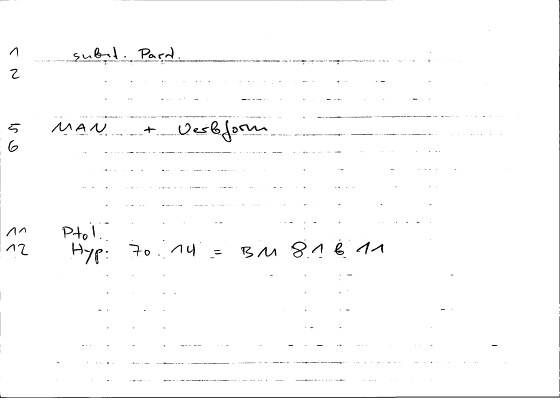 1 subst. Part.
2
5 MAN + Verbform
6
11 Ptol.
12 Hyp. 70. 14 = BM 81 b 11